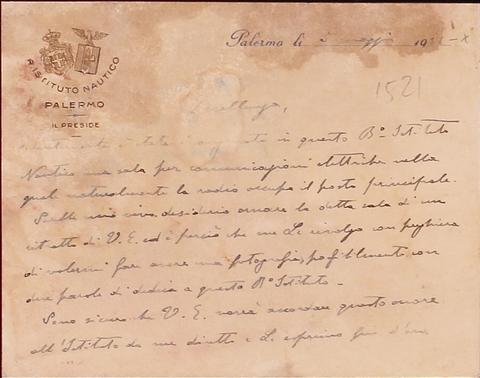 R. ISTITUTO NAUTICO
PALERMO
IL PRESIDE
Palermo li
1521
Eccellenza,
in questo R.o Istituto
Nautico una sala per comunicazioni elettriche nella
quale naturalmente la radio occupa il posto principale.
desiderio ornare la detta sala di un
ritratto di V. E. ed è perciò che mi Le rivolgo con preghiera
di volermi fare avere una fotografia, possibilmente con
due parole di dedica a questo R.o Istituto.
Sono sicuro che V. E. vorrà accordare questo onore
all'Istituto da me diretto e Le esprimo fin d'ora